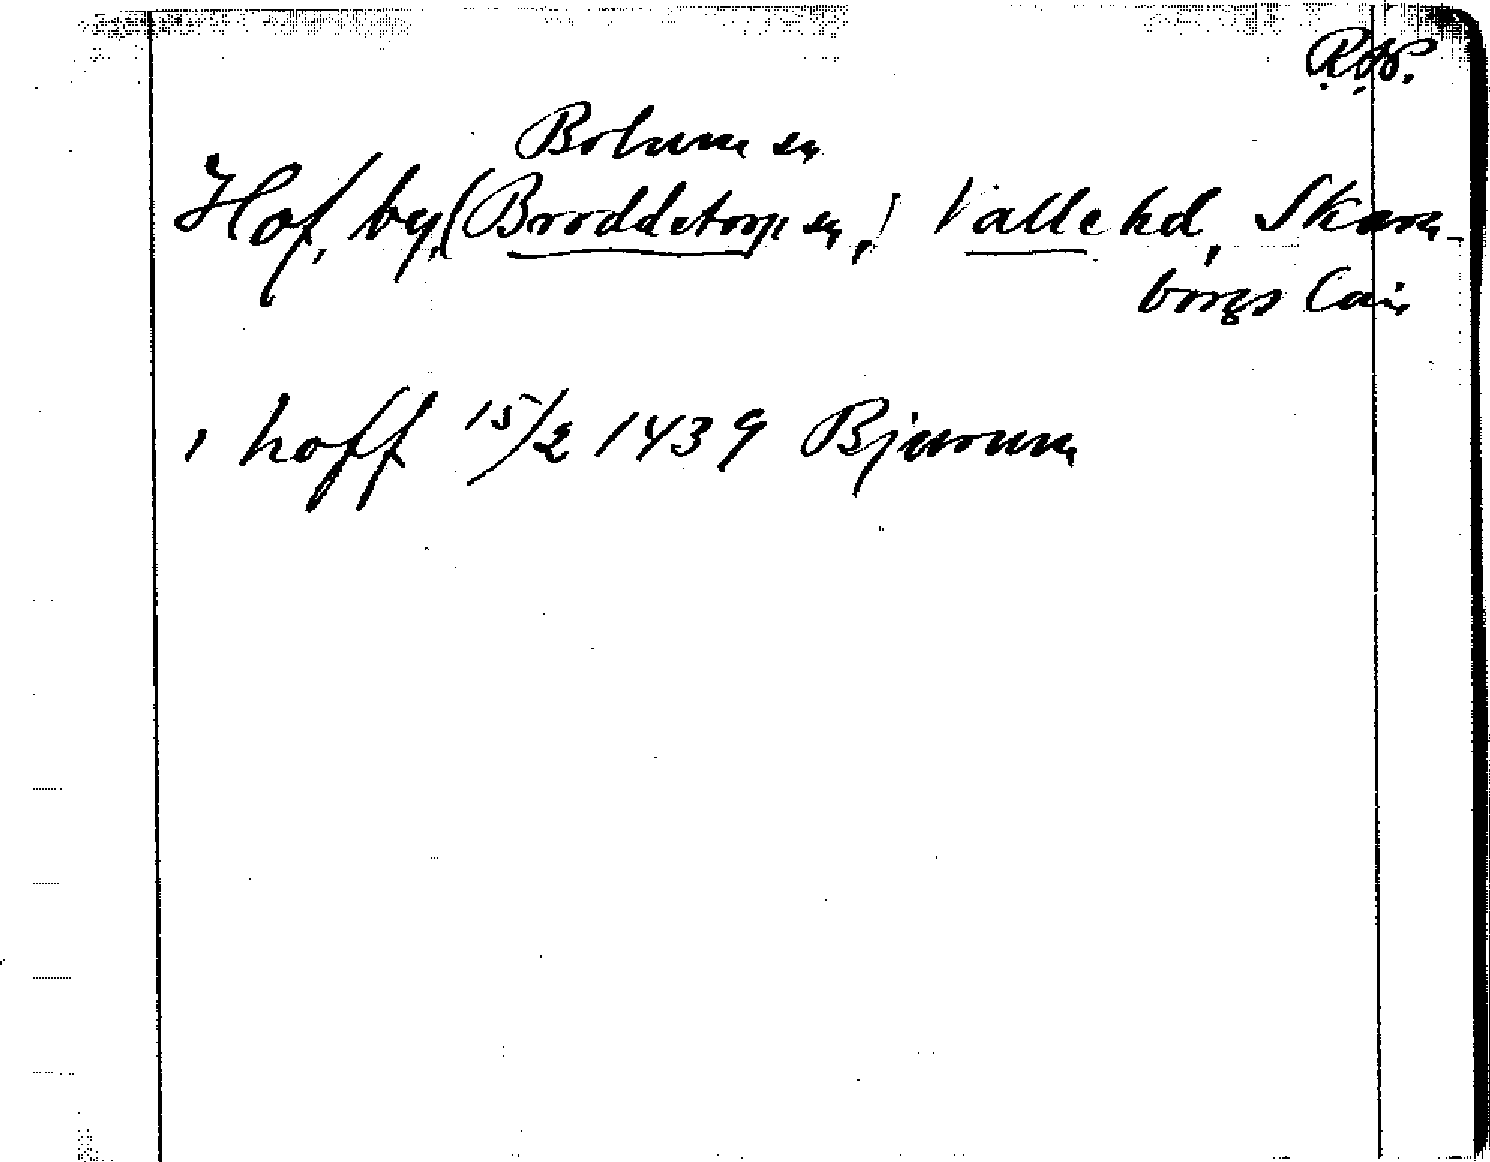 R.A.P.
Bolum sn
Hof, by, (Broddetorp sn,) Valle hd, Skara-
borgs län
i hoff 15/2 1439 Bjurum